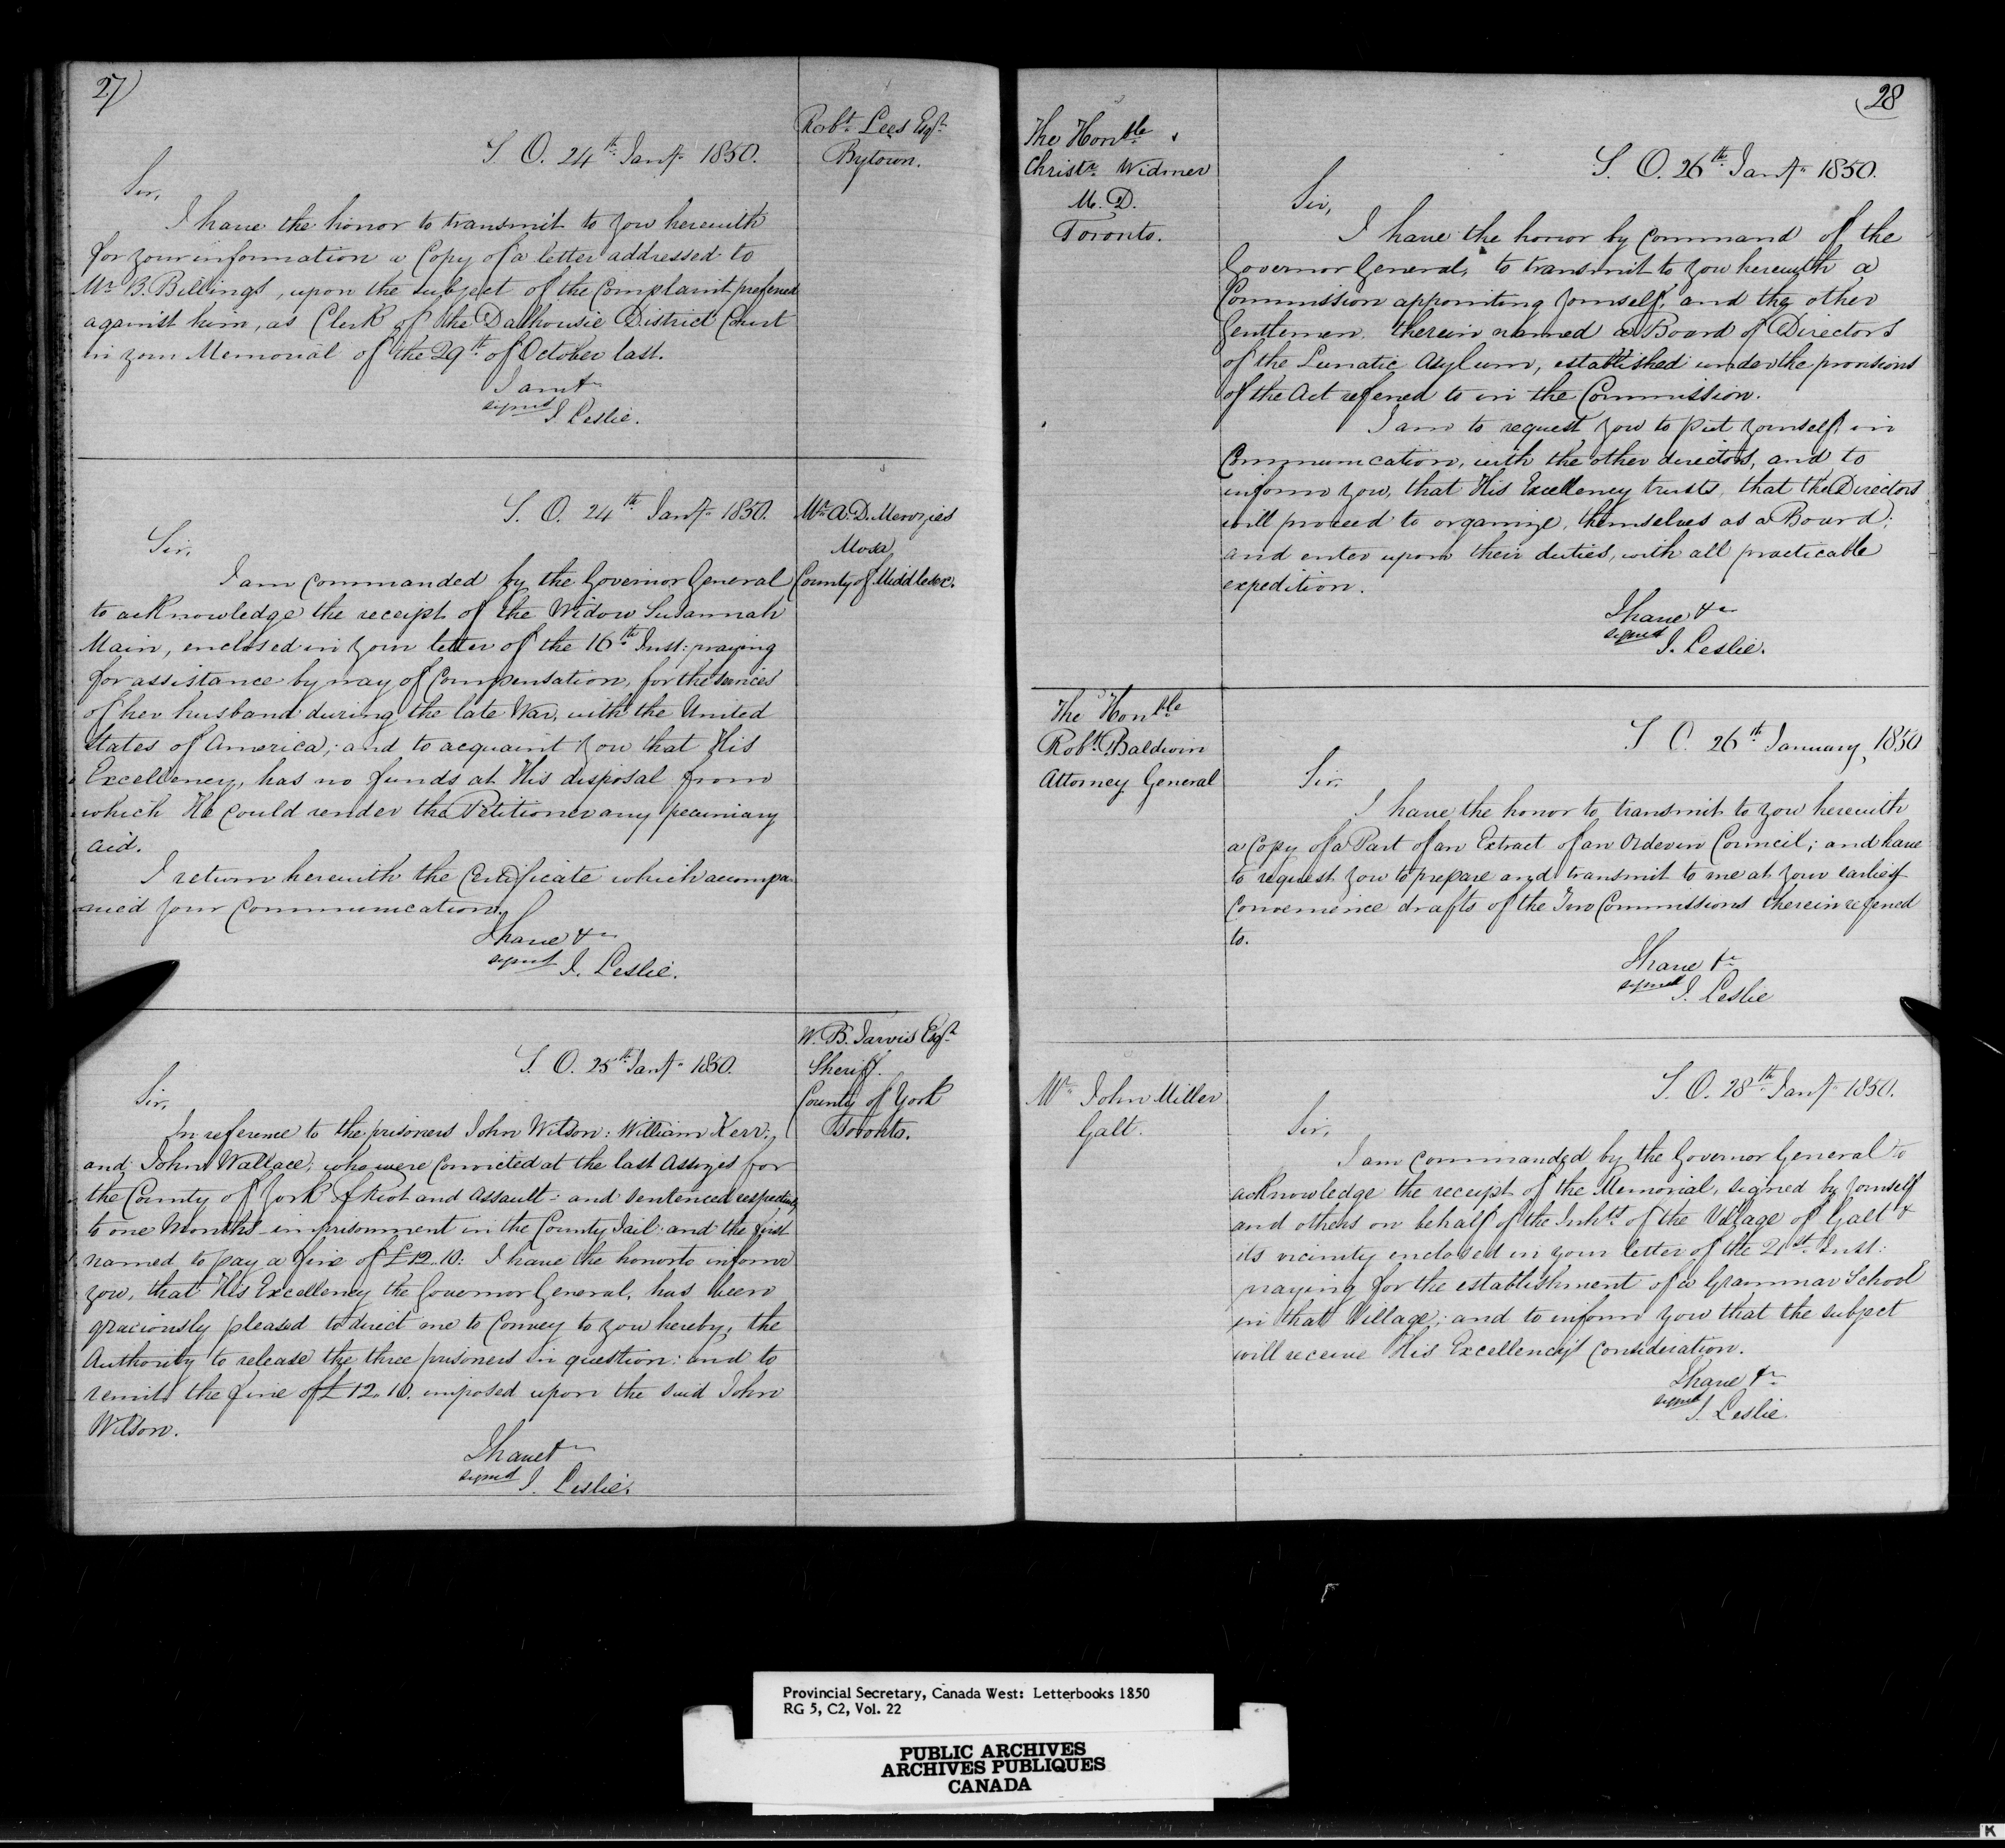 27
Robt. Lees Esqr.
Bytown.
S. O. 24th Jany. 1850.
Sir,
I have the honor to transmit to you herewith
for your information a Copy of a letter addressed to
Mr. B. Billings, upon the subject of the Complaint prefered
against him, as Clerk of the Dalhousie District Court
in your Memorial of the 29th of October last.
I am &c
signed
J. Leslie.
Mr. A. D. Menzies
Mosa,
County of Middlesex.
S. O. 24th Jany. 1850.
Sir,
I am commanded by the Governor General
to acknowledge the receipt of the Widow Susannah
Main, enclosed in your letter of the 16th Inst: praying
for assistance by way of Compensation, for the services
of her husband during the late War, with the United
States of America; and to acquaint you that His
Excellency, has no funds at His disposal from
which He could render the Petitioner any pecuniary
aid.
I return herewith the Certificate which accompa-
nied your Communication.
I have &c
signed J. Leslie.
W. B. Jarvis Esqr.
Sheriff.
County of York
Toronto.
S. O. 25th Jany. 1850.
Sir,
In reference to the prisoners John Wilson: William Kerr:
and John Wallace, who were convicted at the last Assizes for
the County of York of Riot and Assault: and sentenced respectively
to one Months imprisonment in the County Jail and the first
named to pay a fine of £12.10: I have the honor to inform
you, that His Excellency the Governor General, has been
graciously pleased to direct me to Convey to you hereby, the
Authority to release the three prisoners in question: and to
remit the fine of £12.10. imposed upon the said John
Wilson.
I have &c
signed
J. Leslie.
28
The Honble
Christr. Widmer
M. D.
Toronto.
S. O. 26th Jany. 1850.
Sir,
I have the honor by Command of the
Governor General, to transmit to you herewith a
Commission appointing yourself, and the other
Gentlemen therein named a Board of Directors
of the Lunatic Asylum, established under the provisions
of the Act refered to in the Commission.
I am to request you to put yourself in
Communication, with the other directors, and to
inform you, that His Excellency trusts, that the Directors
will proceed to organize, themselves as a Board;
and enter upon their duties, with all practicable
expedition.
I have &c
signed
J. Leslie.
The Honble
Robt. Baldwin
Attorney General
S. O. 26th January, 1850
Sir.
I have the honor to transmit to you herewith
a Copy of a Part of an Extract of an Order in Council; and have
to request you to prepare and transmit to me at your earliest
convenience drafts of the Two Commissions therein refered
to.
I have &c
signed
J. Leslie
Mr. John Miller
Galt.
S. O. 28th Jany. 1850.
Sir,
I am commanded by the Governor General to
acknowledge the receipt of the Memorial, signed by yourself
and others on behalf of the Inhts. of the Village of Galt &
its vicinity enclosed in your letter of the 21st. Inst:
praying for the establishment of a Grammar School
in that Village; and to inform you that the subject
will receive His Excellency's consideration.
I have &c
signed
J. Leslie.
Provincial Secretary, Canada West: Letterbooks 1850
RG 5, C2, Vol. 22
PUBLIC ARCHIVES
ARCHIVES PUBLIQUES
CANADA
K